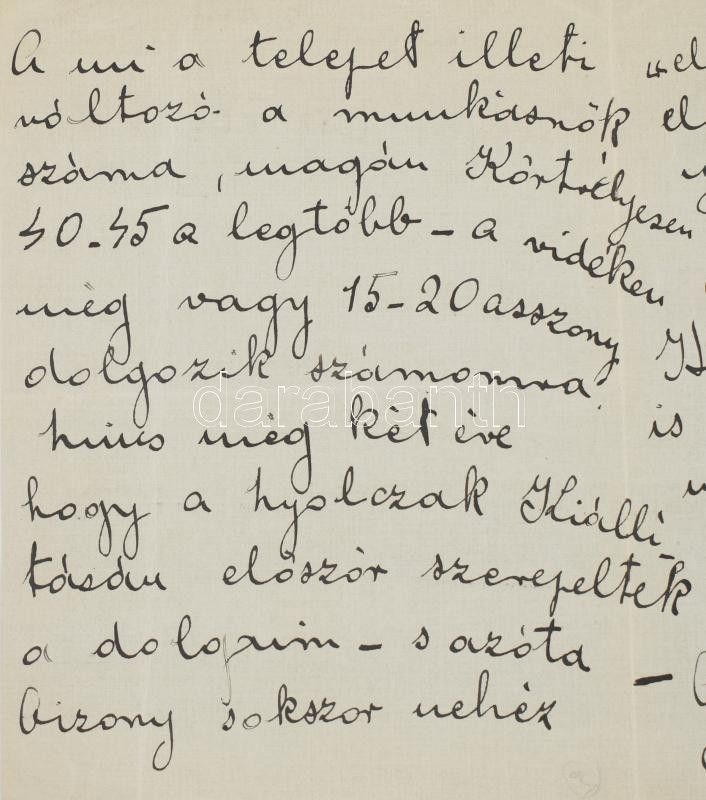 A mi a telepet illeti „el
változó a munkásnők el
száma, magán Körtvélyesen
40-45 a legtöbb – a vidéken
még vagy 15-20 asszony
dolgozik számomra
nincs még két éve is
hogy a nyolczak Kiállí-
tásán először szerepeltek
a dolgaim – s azóta –
bizony sokszor nehéz
darabanth